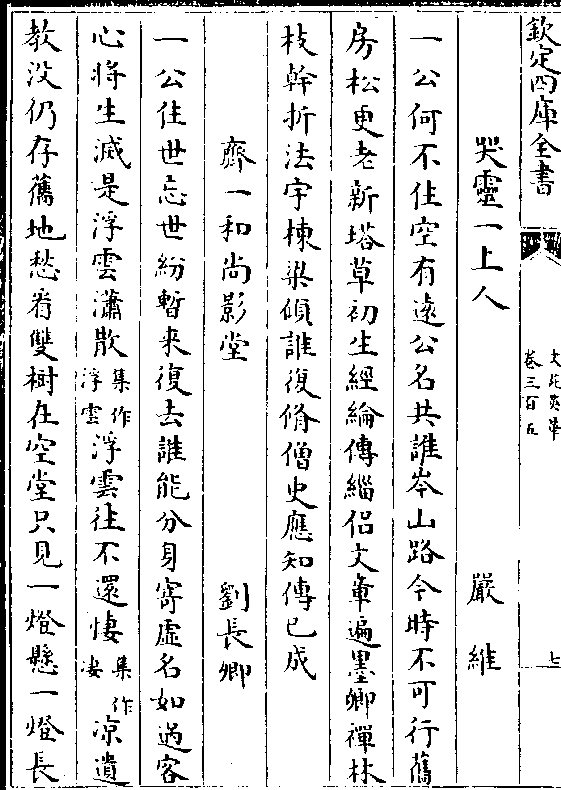 欽定四庫全書
文苑英華
卷三百五
七
哭靈一上人
嚴維
一公何不住空有遠公名共誰岑山路今時不可行舊
房松更老新塔草初生經綸傳緇侣文章遍墨卿禪林
枝幹折法宇棟梁傾誰復脩僧史應知傳已成
齊一和尚影堂
劉長卿
一公住世忘世紛暫来復去誰能分身寄虚名如過客
心將生滅是浮雲瀟散集作浮雲浮雲往不還悽集作凄凉遺
教没仍存舊地愁看雙樹在空堂只見一燈懸一燈長